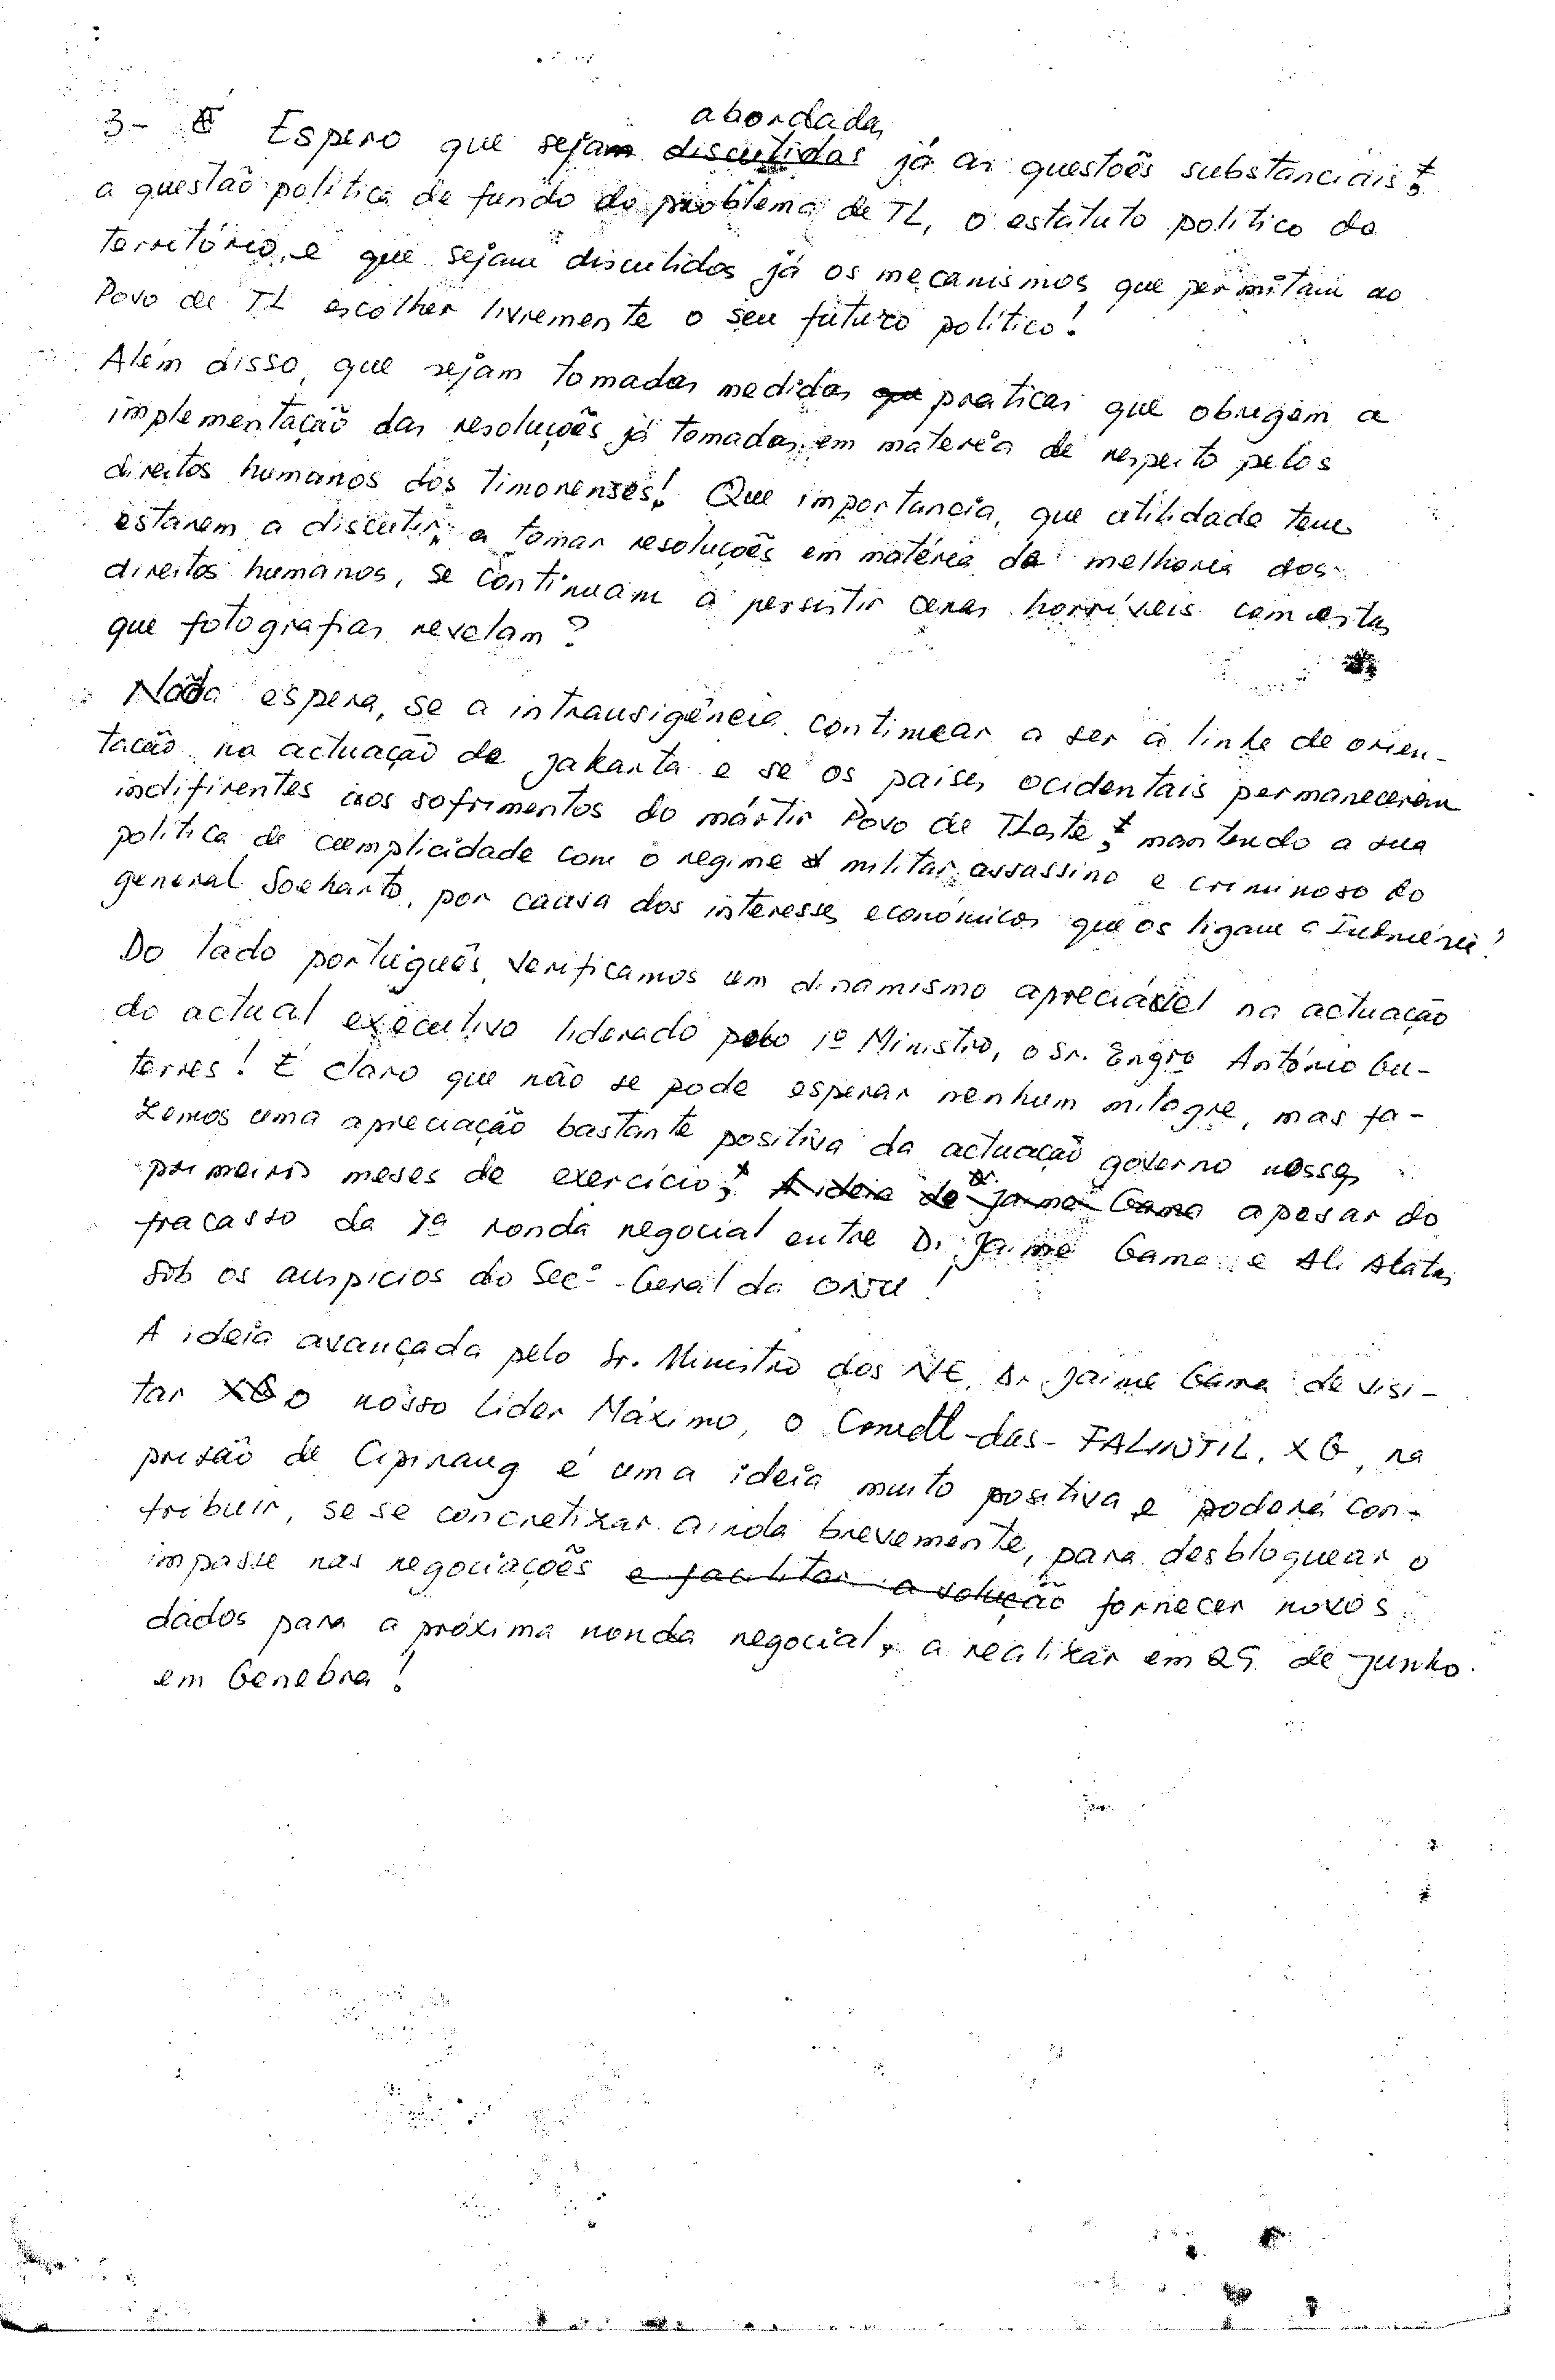 abordadas
3- Espero que sejam discutidas já as questões substanciais:
a questão política de fundo do problema de TL, o estatuto político do
território, e que sejam discutidos já os mecanismos que permitam ao
Povo de TL escolher livremente o seu futuro político!
Além disso, que sejam tomadas medidas que praticas que obrigem a
implementação das resoluções já tomadas em materia de respeito pelos
direitos humanos dos timorenses! Que importancia, que utilidade tem
estarem a discutir, a tomar resoluções em matéria de melhoria dos
direitos humanos, se continuam a persistir cenas horríveis com estas
que fotografias revelam?
Nada espera, se a intransigência continuar a ser a linha de orien-
tacão na actuação de Jakarta e se os paises ocidentais permanecerem
indifirentes aos sofrimentos do mártir Povo de TLeste, mantendo a sua
política de cumplicidade com o regime militar, assassino e criminoso do
general Soeharto, por causa dos interesses económicos que os ligam a Indonésia!
Do lado português, verificamos um dinamismo apreciável na actuação
do actual executivo liderado pelo 1º Ministro, o Sr. Engro António Gu-
terres! É claro que não se pode esperar nenhum milagre, mas fa-
zemos uma apreciação bastante positiva da actuação governo nesses
primeiros meses de exercício, A ideia do Dr. Jaime Gama apesar do
fracasso da 7ª ronda negocial entre Dr. Jaime Gama e Ali Alatas
sob os auspicios do Secº-Geral da ONU!
A ideia avançada pelo Sr. Ministro dos NE, Dr. Jaime Gama de visi-
tar XG o nosso Líder Máximo, o Comdt-das-FALINTIL, XG, na
prisão de Cipinang é uma ideia muito positiva e poderá con-
tribuir, se se concretizar ainda brevemente, para desbloquear o
impasse nas negociações e facilitar a solução fornecer novos
dados para a próxima ronda negocial, a realizar em 29 de Junho
em Genebra!